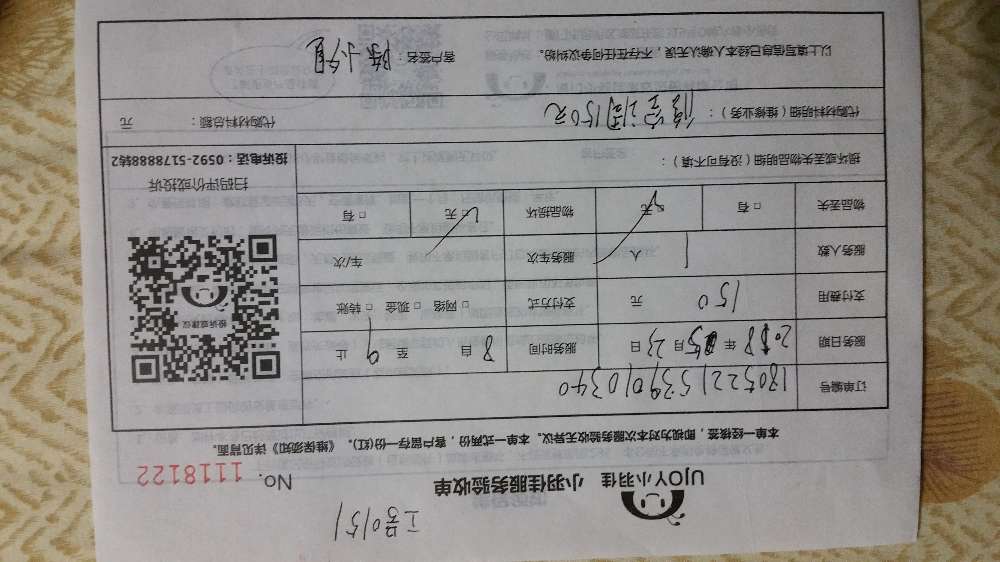 工号0151
UJOY小羽佳 小羽佳服务验收单 No. 1118122
本单一经核签，即视为对本次服务验收无异议。本单一式两份，客户留存一份(红)。《维保须知》详见背面。
订单编号 180522153901010340
服务日期 2018年05月23日 服务时间 8自 至9止
支付费用 150元 支付方式 □网络 □现金 □转账
服务人数 1人 服务车次 车/次
物品丢失 □有 □无 物品损坏 □无 □有
投诉或建议
扫码评价或投诉
投诉电话：0592-5178888转2
损坏或丢失物品明细（没有可不填）：
代购材料明细（维修业务）： 修空调150元 代购材料总额： 元
以上填写信息已经本人确认无误，不存在任何争议纠纷。 客户签名：